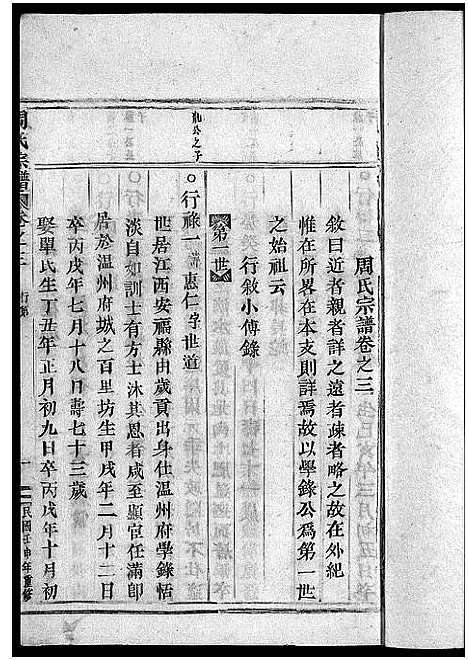 周氏宗譜卷之三
敘曰近者親者詳之遠者疎者略之故在外紀
惟在所畧在本支則詳焉故以學錄公爲第一世
之始祖云
行敘小傳錄
第一世
○行祿一諱惠仁字世道
世居江西安福縣由歲貢出身仕温州府學錄恬
淡自如訓士有方士沐其恩者咸至顯宦任滿卽
居於温州府城之百里坊生甲戌年二月十二日
卒丙戌年七月十八日壽七十三歲
娶單氏生丁丑年正月初九日卒丙戌年十月初
周氏宗譜
卷之三
行第
一
民國壬申年重修